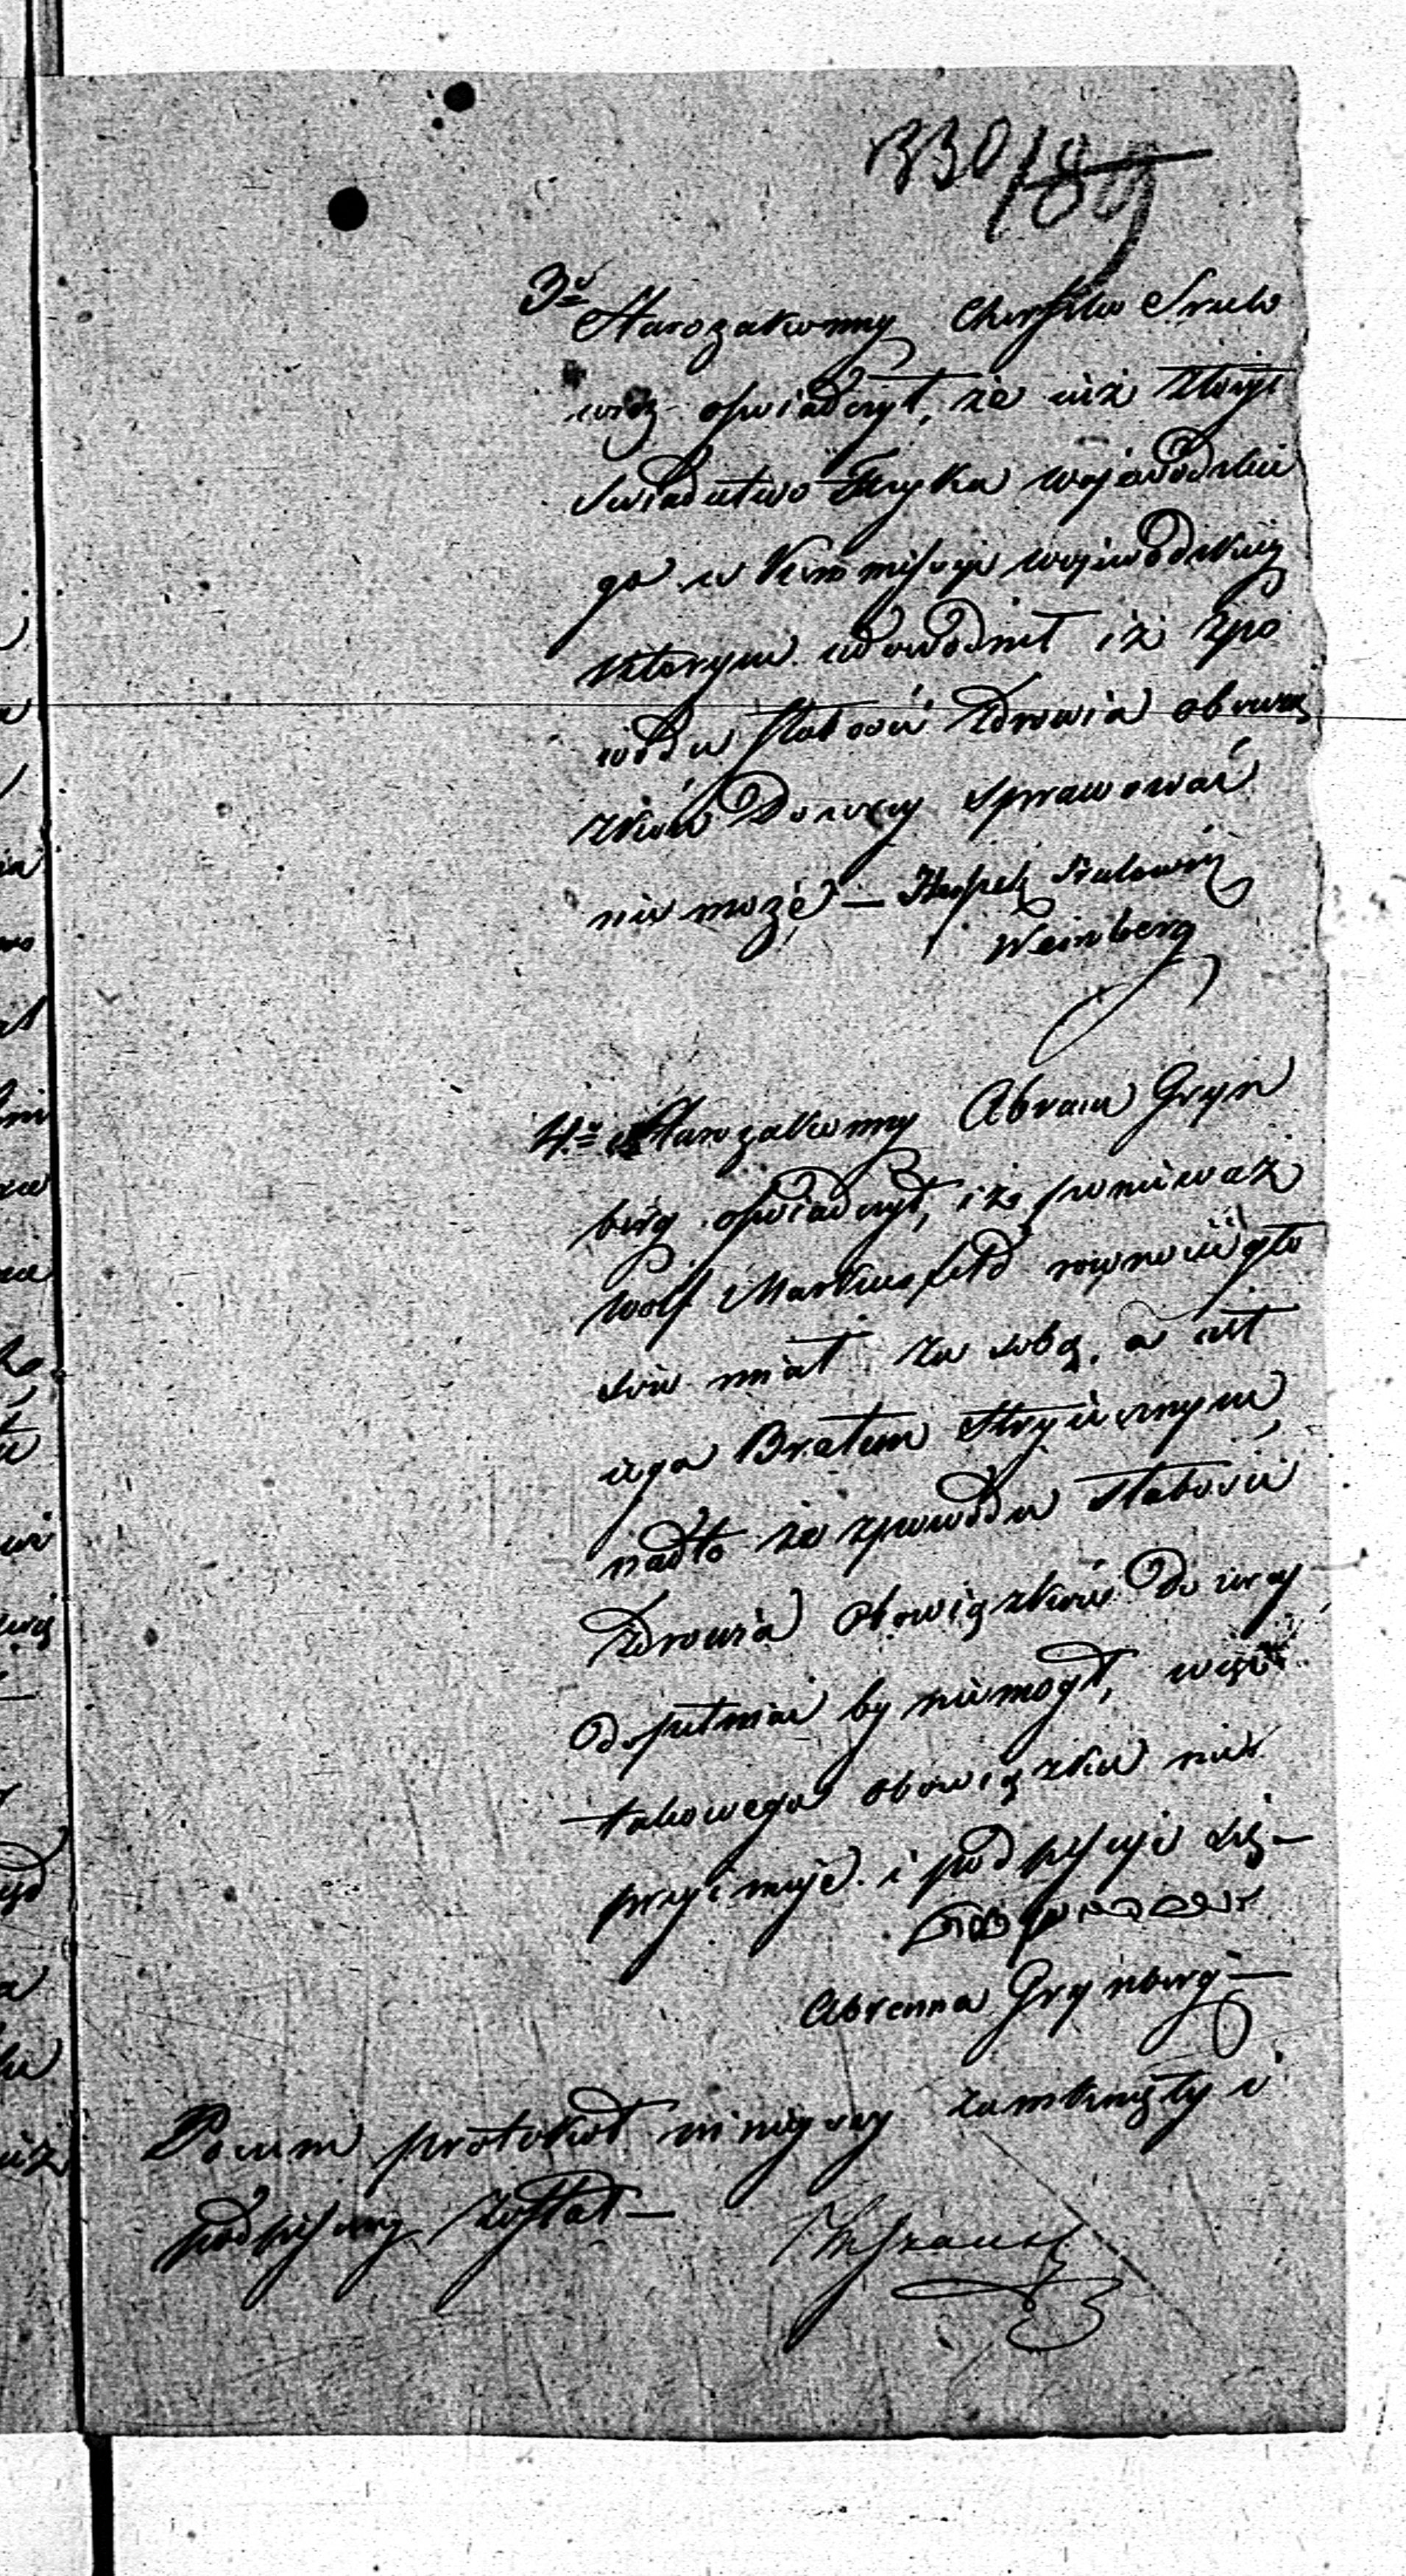 330
189
3o Starozakonny Herszko Srulo
wicz oświadczył, że już złożył
Swiadectwo Fizyka wojewódzkie
go w Kommissyi wojewódzkiey
którym udowodnił iż zpo
wodu słabości zdrowia obowią
zków Dozorcy sprawować
nie może — Srulowicz
Weinberg
4o Starozakonny Abram Gryn
berg oświadczył, iż ponieważ
Wolf Markusfeld równo iego
sów miał za sobą, a iest
iego Bratem Stryiecznym,
nadto że zpowodu słabości
zdrowia obowiązków Dozorcy
dopełniać by niemógł, więc
takowego obowiązku nie
przyimuje i podpisuje się —
Abrama Grynberg —
Poczem protokół ninieyszy zamknięty i
podpisany został —